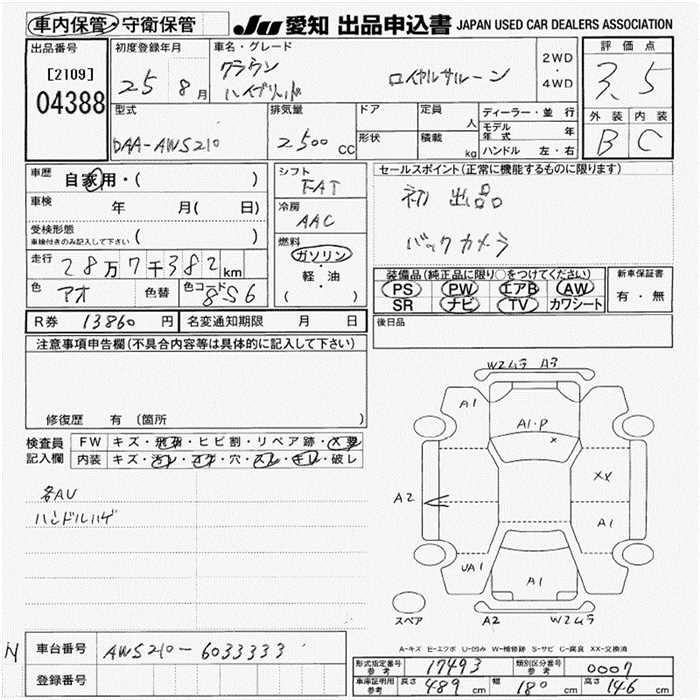 車内保管・守衛保管
JU 愛知 出品申込書 JAPAN USED CAR DEALERS ASSOCIATION
出品番号
[2109]
04388
初度登録年月
25 8月
車名・グレード
クラウン
ハイブリッド
ロイヤルサルーン
2WD
・
4WD
評価点
3.5
外装 内装
B C
型式
DAA-AWS210
排気量
2500 CC
ドア
形状
定員 人
積載 kg
ディーラー・並行
モデル年式 年
ハンドル 左・右
車歴
自家用・( )
車検 年 月( 日)
受検形態
車検付きのみ記入して下さい ( )
走行 28万7千382km
色 アオ 色替 色コード 8S6
シフト
FAT
冷房
AAC
燃料
ガソリン
・
軽・油
( )
セールスポイント(正常に機能するものに限ります)
初 出品
バックカメラ
装備品(純正品に限り○をつけてください)
PS PW エアB AW
SR ナビ TV カワシート
新車保証書
有・無
R券 13860円 名変通知期限 月 日
後日品
注意事項申告欄(不具合内容等は具体的に記入して下さい)
修復歴 有 〔箇所 〕
検査員記入欄
FW キズ・飛石・ヒビ割・リペア跡・×要
内装 キズ・汚レ・コゲ・穴・スレ・キレ・破レ
各AU
ハンドルハゲ
W2ムラ A3
A1
A1・P
×
XX
A2
A1
UA1
A1
スペア
A2 W2ムラ
A-キズ E-エクボ U-凹み W-補修跡 S-サビ C-腐食 XX-交換済
車台番号 AWS210-6033333
登録番号
形式指定番号 参考 17493 類別区分番号 参考 0007
車庫証明用 参考 長さ 489cm 幅 180cm 高さ 146cm